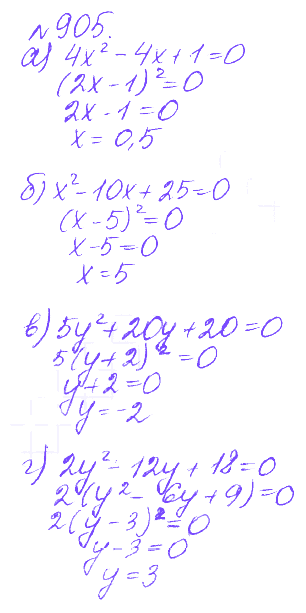 №905.
а) 4x² - 4x + 1 = 0
(2x - 1)² = 0
2x - 1 = 0
x = 0,5
б) x² - 10x + 25 = 0
(x - 5)² = 0
x - 5 = 0
x = 5
в) 5y² + 20y + 20 = 0
5(y + 2)² = 0
y + 2 = 0
y = -2
г) 2y² - 12y + 18 = 0
2(y² - 6y + 9) = 0
2(y - 3)² = 0
y - 3 = 0
y = 3